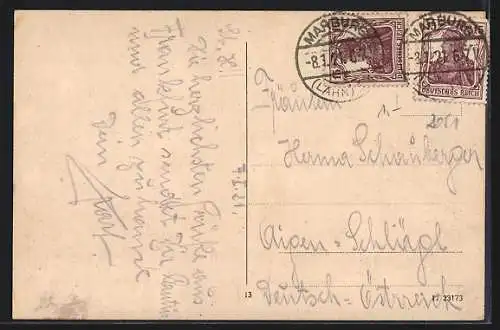 Die herzlichsten Grüße aus
Frankfurt sendet Dir
und allen zu Hause
Dein
Karl
7.I.21.
MARBURG
-8.1.21
(LAHN)
MARBURG
DEUTSCHES REICH
DEUTSCHES REICH
Fräulein
Herma Schauberger
Aigen-Schlägl
Deutsch-Österreich
13
17 23173